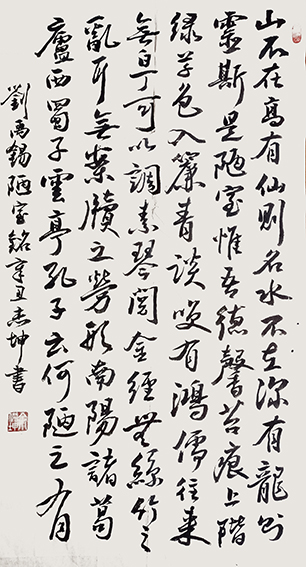 山不在高有仙则名水不在深有龍则
靈斯是陋室惟吾德馨苔痕上階
绿草色入簾青談笑有鴻儒往来
無白丁可以調素琴閱金經無絲竹之
亂耳無案牘之勞形南陽諸葛
廬西蜀子雲亭孔子云何陋之有
劉禹錫陋室銘辛丑坤書